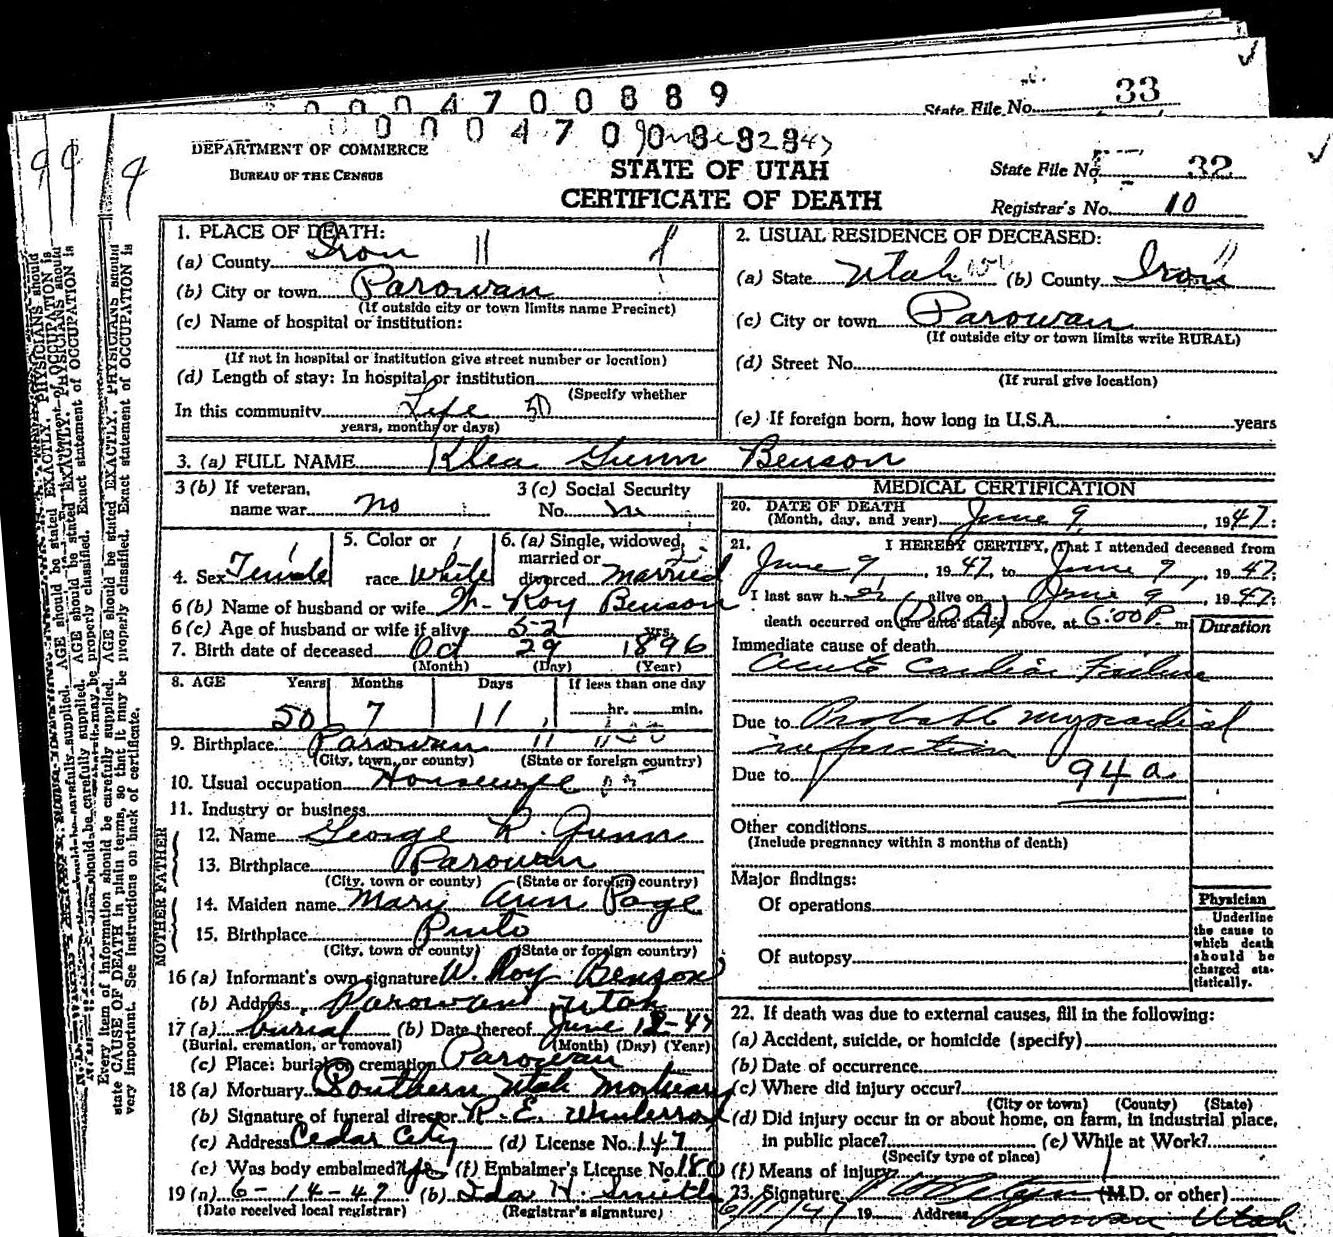 0 0 0 4 7 0 0 8 8 9
State File No. 33
0 0 0 4 7 0
DEPARTMENT OF COMMERCE
BUREAU OF THE CENSUS
STATE OF UTAH
CERTIFICATE OF DEATH
State File No. 32
Registrar's No. 10
1. PLACE OF DEATH:
(a) County Iron 11
(b) City or town Parowan
(If outside city or town limits name Precinct)
(c) Name of hospital or institution:
(If not in hospital or institution give street number or location)
(d) Length of stay: In hospital or institution
(Specify whether
In this community Life 50
years, months or days)
2. USUAL RESIDENCE OF DECEASED:
(a) State Utah (b) County Iron
(c) City or town Parowan
(If outside city or town limits write RURAL)
(d) Street No.
(If rural give location)
(e) If foreign born, how long in U.S.A. years
3. (a) FULL NAME Klea Gunn Benson
3 (b) If veteran,
name war no
3 (c) Social Security
No.
4. Sex Female
5. Color or
race White
6. (a) Single, widowed,
married or
divorced married
6 (b) Name of husband or wife W. Roy Benson
6 (c) Age of husband or wife if alive 52 yrs.
7. Birth date of deceased Oct 29 1896
(Month) (Day) (Year)
8. AGE Years Months Days If less than one day
50 7 11 hr. min.
9. Birthplace Parowan
(City, town, or county) (State or foreign country)
10. Usual occupation Housewife
11. Industry or business
FATHER
12. Name George L. Gunn
13. Birthplace Parowan
(City, town or county) (State or foreign country)
MOTHER
14. Maiden name Mary Ann Page
15. Birthplace Pinto
(City, town or county) (State or foreign country)
16 (a) Informant's own signature W. Roy Benson
(b) Address Parowan Utah
17 (a) burial (b) Date thereof June 12-47
(Burial, cremation, or removal) (Month) (Day) (Year)
(c) Place: burial or cremation Parowan
18 (a) Mortuary Southern Utah Mortuary
(b) Signature of funeral director R. E.
(c) Address Cedar City (d) License No. 147
(e) Was body embalmed? yes (f) Embalmer's License No. 180
19 (a) 6-14-47 (b) Ida H. Smith
(Date received local registrar) (Registrar's signature)
MEDICAL CERTIFICATION
20. DATE OF DEATH
(Month, day, and year) June 9, 1947;
21. I HEREBY CERTIFY, That I attended deceased from
June 9, 1947, to June 9, 1947;
I last saw her alive on June 9 1947;
(D.O.A.)
death occurred on the date stated above, at 6:00 P. m.
Duration
Immediate cause of death
Acute Cardiac Failure
Due to Probable myocardial
infarction
Due to 94a
Other conditions
(Include pregnancy within 3 months of death)
Major findings:
Of operations
Of autopsy
Physician
Underline
the cause to
which death
should be
charged sta-
tistically.
22. If death was due to external causes, fill in the following:
(a) Accident, suicide, or homicide (specify)
(b) Date of occurrence
(c) Where did injury occur?
(City or town) (County) (State)
(d) Did injury occur in or about home, on farm, in industrial place,
in public place? (e) While at Work?
(Specify type of place)
(f) Means of injury
23. Signature (M.D. or other)
6/11/47 19 Address Parowan Utah
Every item of information should be carefully supplied. AGE should be stated EXACTLY. PHYSICIANS should
state CAUSE OF DEATH in plain terms, so that it may be properly classified. Exact statement of OCCUPATION is
very important. See instructions on back of certificate.